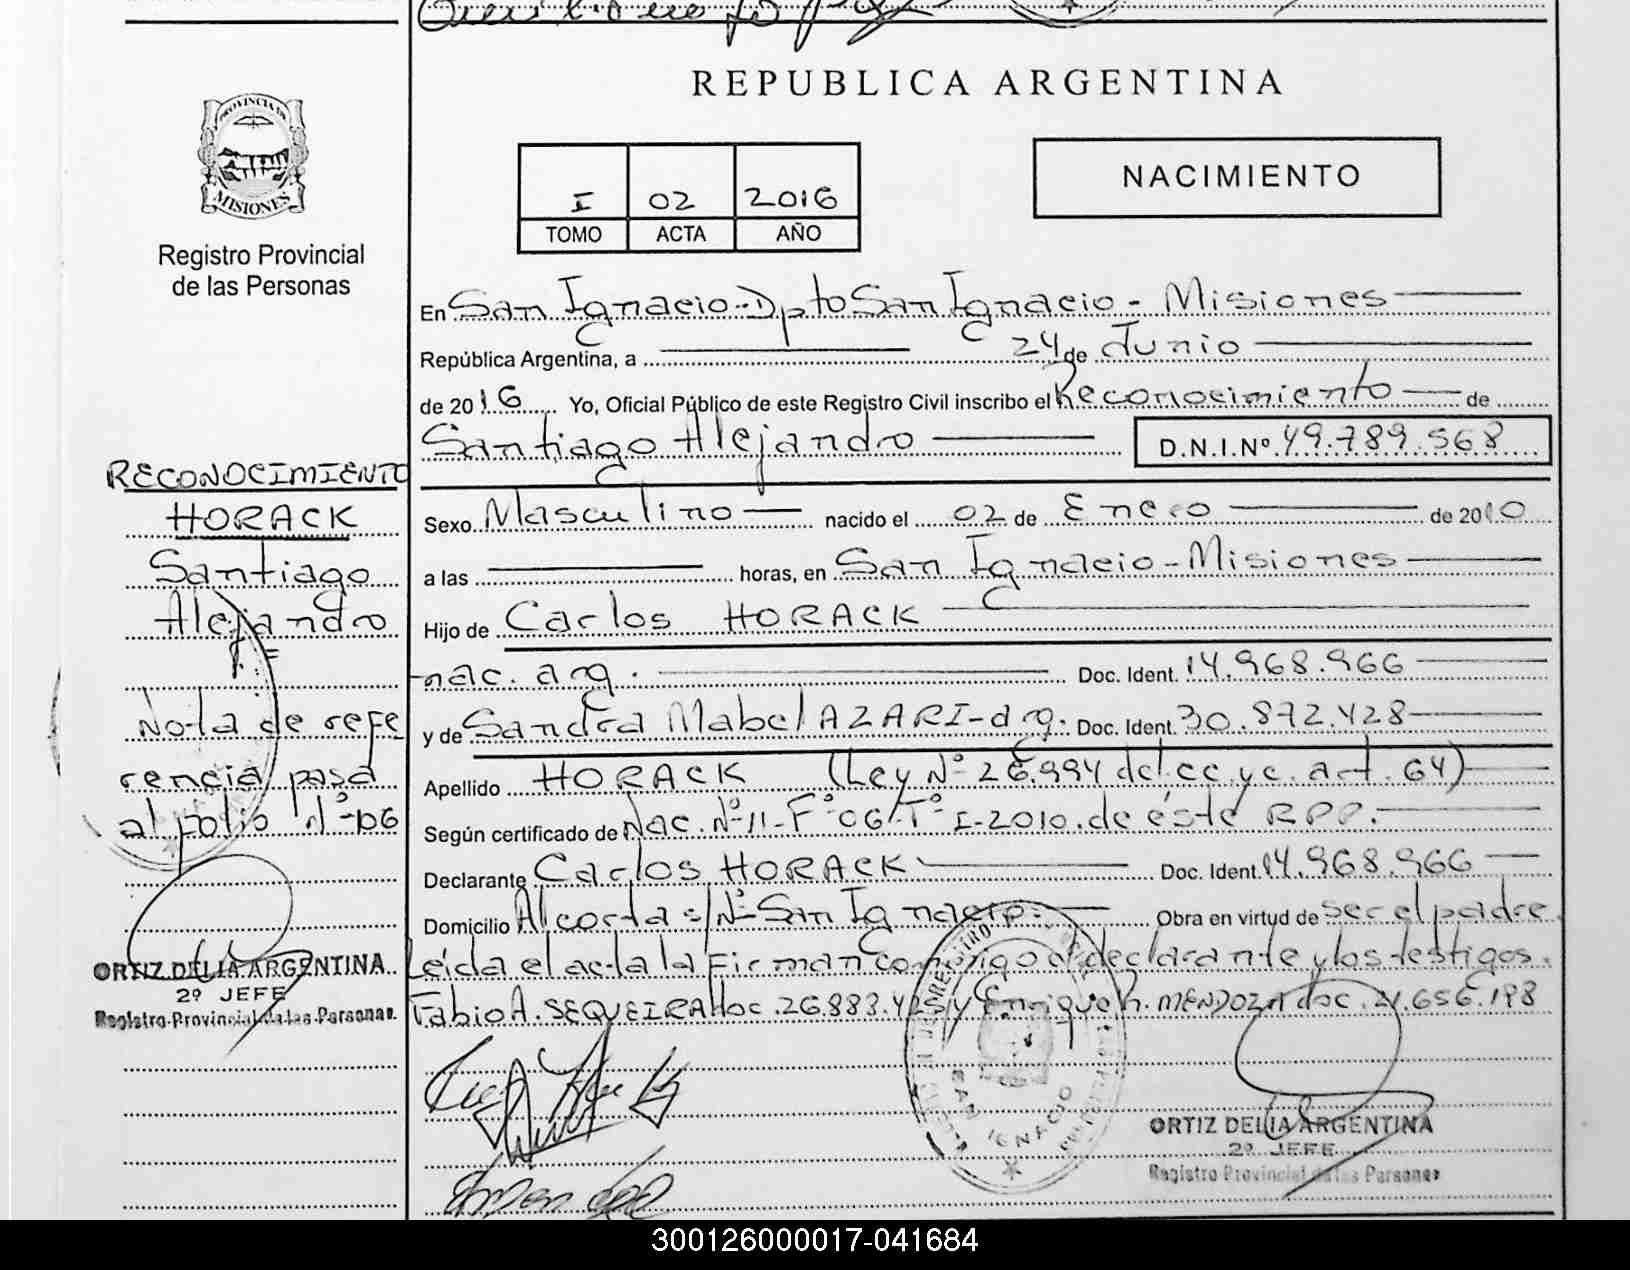 REPUBLICA ARGENTINA
PROVINCIA DE
MISIONES
Registro Provincial
de las Personas
I 02 2016
TOMO ACTA AÑO
NACIMIENTO
En San Ignacio - Dpto San Ignacio - Misiones
República Argentina, a 24 de Junio
de 2016 Yo, Oficial Público de este Registro Civil inscribo el Reconocimiento de
Santiago Alejandro D.N.I.Nº 49.789.568
RECONOCIMIENTO
HORACK
Santiago
Alejandro
Nota de refe
rencia pasa
al folio Nº 06
ORTIZ DELIA ARGENTINA
2º JEFE
Registro Provincial de las Personas
Sexo Masculino nacido el 02 de Enero de 2010
a las horas, en San Ignacio - Misiones
Hijo de Carlos HORACK
nac. arg. Doc. Ident. 14.968.966
y de Sandra Mabel AZARI - arg. Doc. Ident. 30.872.428
Apellido HORACK (Ley Nº 26.994 del cc. y c. art. 64)
Según certificado de Nac. Nº 11 - Fº 06 - Tº I - 2010. de éste RPP.
Declarante Carlos HORACK Doc. Ident. 14.968.966
Domicilio Alcorta s/Nº San Ignacio. Obra en virtud de ser el padre
Leida el acta la Firman conmigo el declarante y los testigos.
Fabio A. SEQUEIRA doc. 26.883.425 y Enrique h. MENDOZA doc. 21.656.198
SAN IGNACIO
ORTIZ DELIA ARGENTINA
2º JEFE
Registro Provincial de las Personas
300126000017-041684